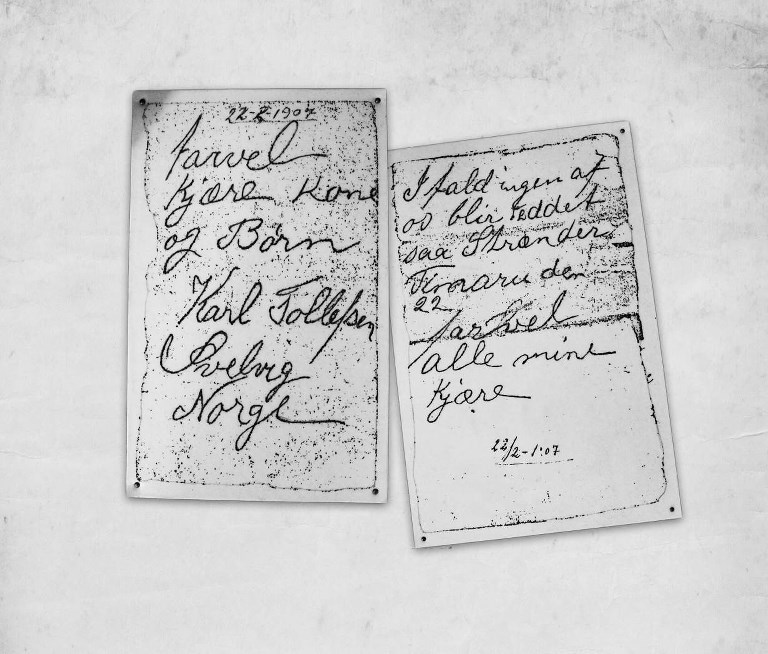 22-2-1907
farvel
Kjære Kone
og Børn
Karl Tollefsen
Svelvig
Norge
I fald ingen af
os blir reddet
saa Strander
Timaru den
22
farvel
alle mine
Kjære
22/2-1907